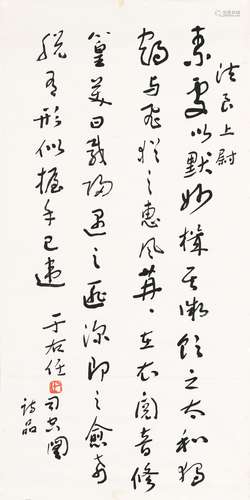 法良上尉
素處以默妙機其微飲之太和獨
鶴與飛猶之惠風苒苒在衣閱音修
篁美曰載歸遇之匪深即之愈希
脫有形似握手已違 于右任 司空圖
詩品